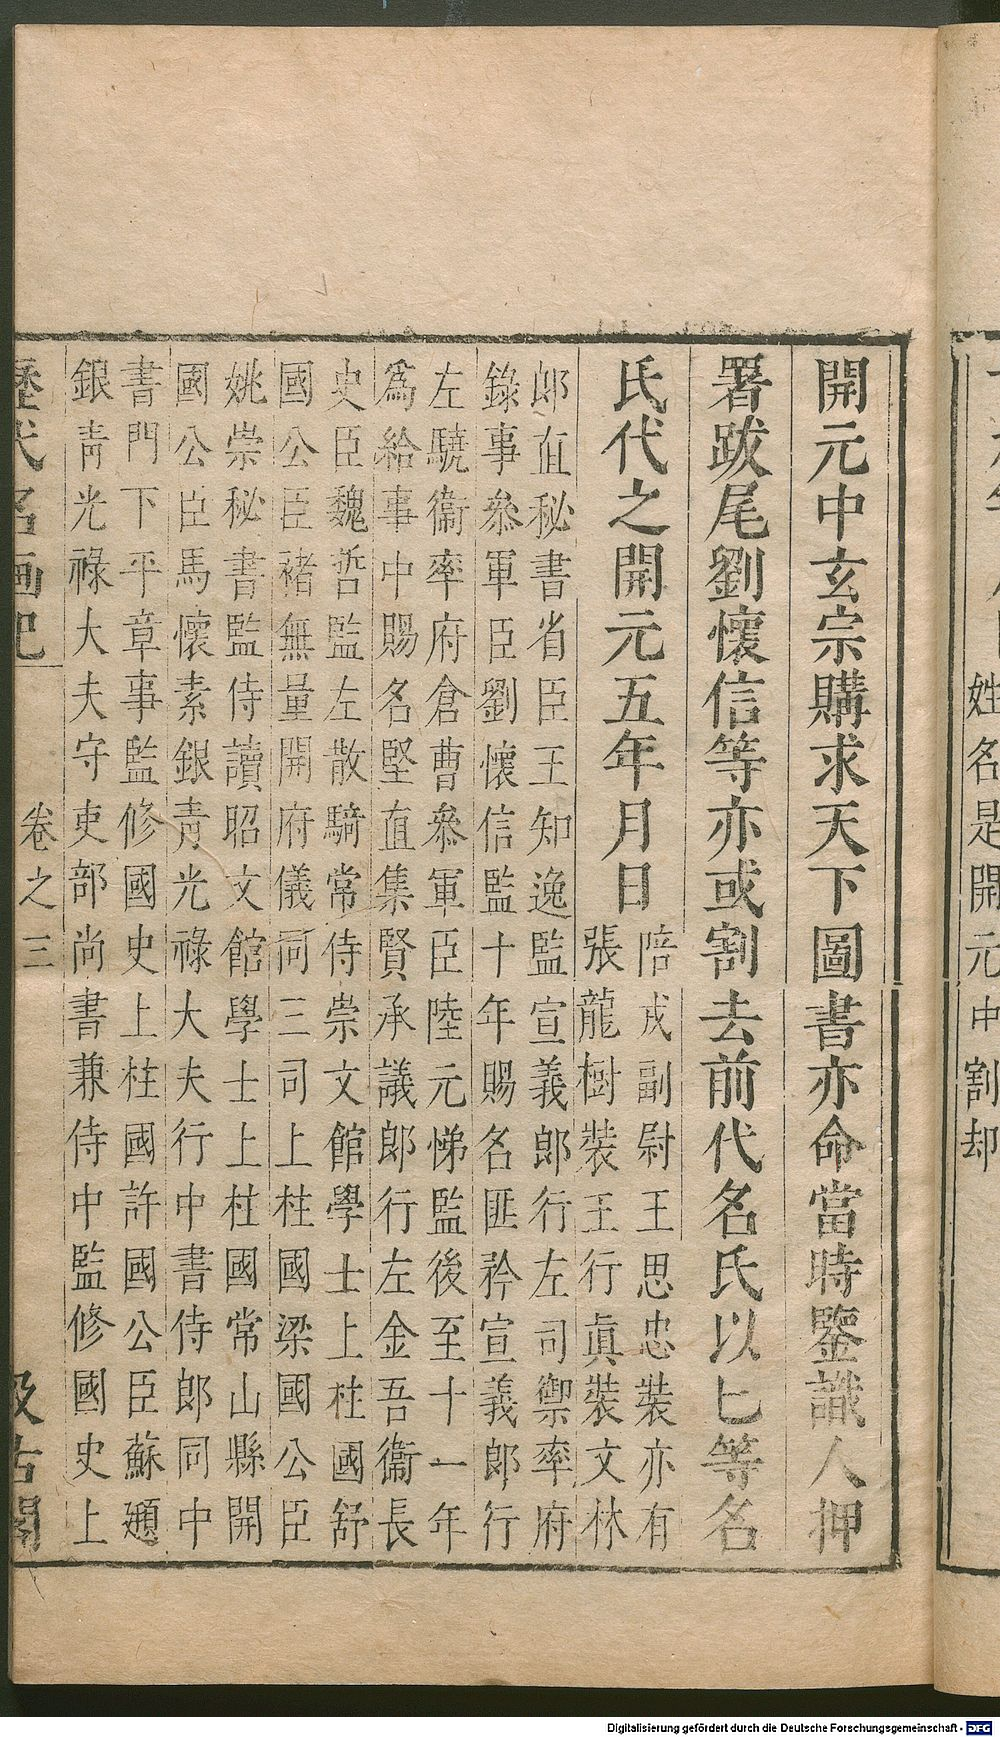 姓名是開元中割却
開元中玄宗購求天下圖書亦命當時鑒識人押
署跋尾劉懷信等亦或割去前代名氏以匕等名
氏代之開元五年月日
陪戎副尉王思忠裝亦有
張龍樹裝王行眞裝文林
郎直秘書省臣王知逸監宣義郎行左司禦率府
錄事叅軍臣劉懷信監十年賜名匪矜宣義郎行
左驍衞率府倉曹叅軍臣陸元悌監後至十一年
爲給事中賜名堅直集賢承議郎行左金吾衞長
史臣魏哲監左散騎常侍崇文館學士上柱國舒
國公臣褚無量開府儀同三司上柱國梁國公臣
姚崇秘書監侍讀昭文館學士上柱國常山縣開
國公臣馬懷素銀青光祿大夫行中書侍郎同中
書門下平章事監修國史上柱國許國公臣蘇頲
銀青光祿大夫守吏部尚書兼侍中監修國史上
歷代名画記 卷之三 汲古閣
Digitalisierung gefördert durch die Deutsche Forschungsgemeinschaft - DFG